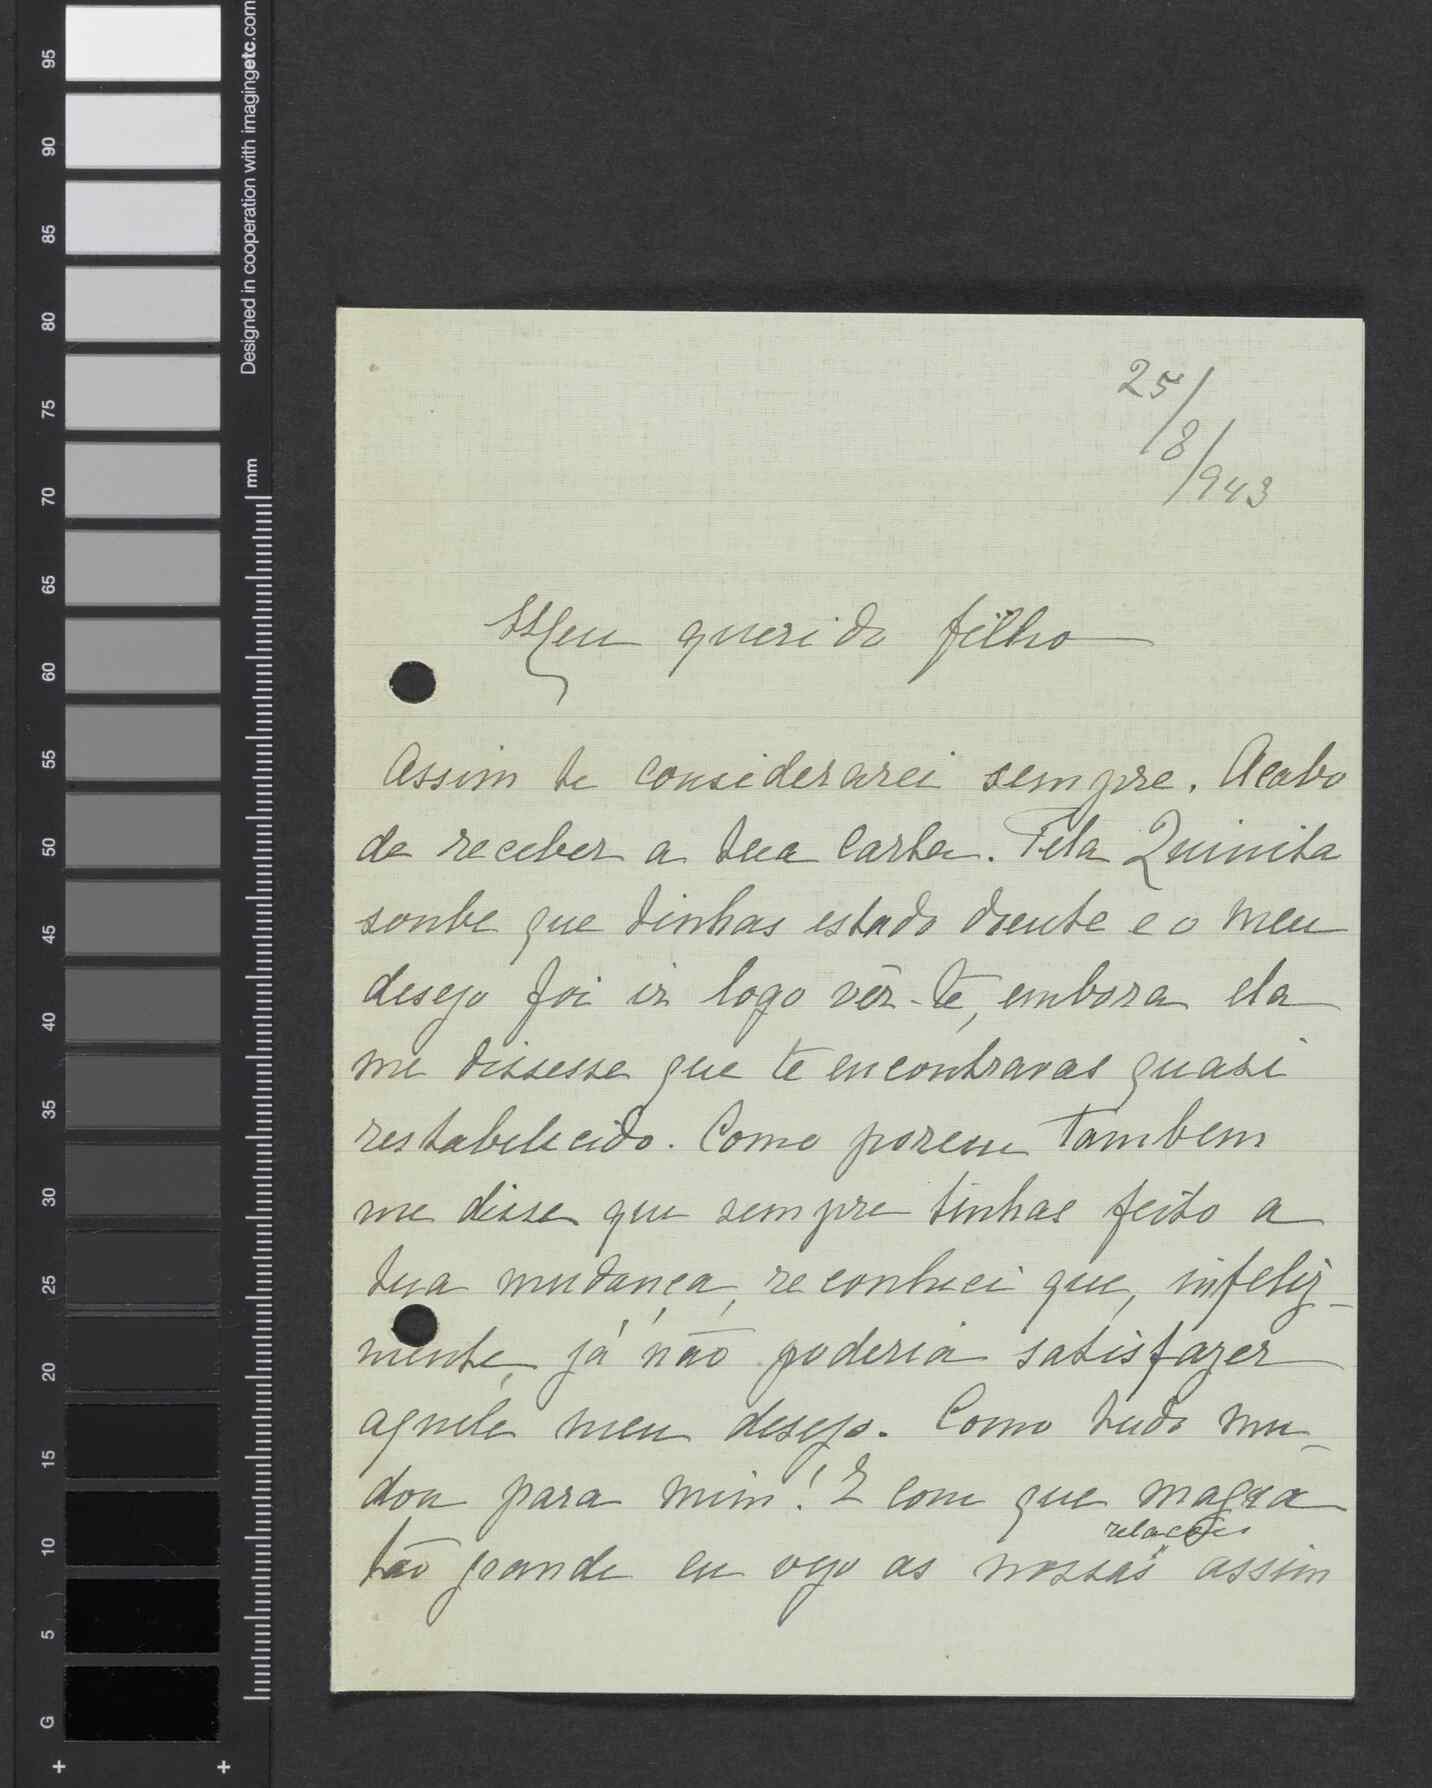 95
90
85
80
75
70
65
60
55
50
45
40
35
30
25
20
15
10
5
G
Designed in cooperation with imagingetc.com
mm
25/
8/
943
Meu querido filho
Assim te considerarei sempre. Acabo
de receber a tua carta. Pela Quinita
soube que tinhas estado doente e o meu
desejo foi ir logo vêr-te, embora ela
me dissesse que te encontravas quasi
restabelecido. Como porem tambem
me disse que sempre tinhas feito a
tua mudança, reconheci que, infeliz-
mente, já não poderia satisfazer
aquele meu desejo. Como tudo mu-
dou para mim! E com que magua
relações
tão grande eu vejo as nossas assim